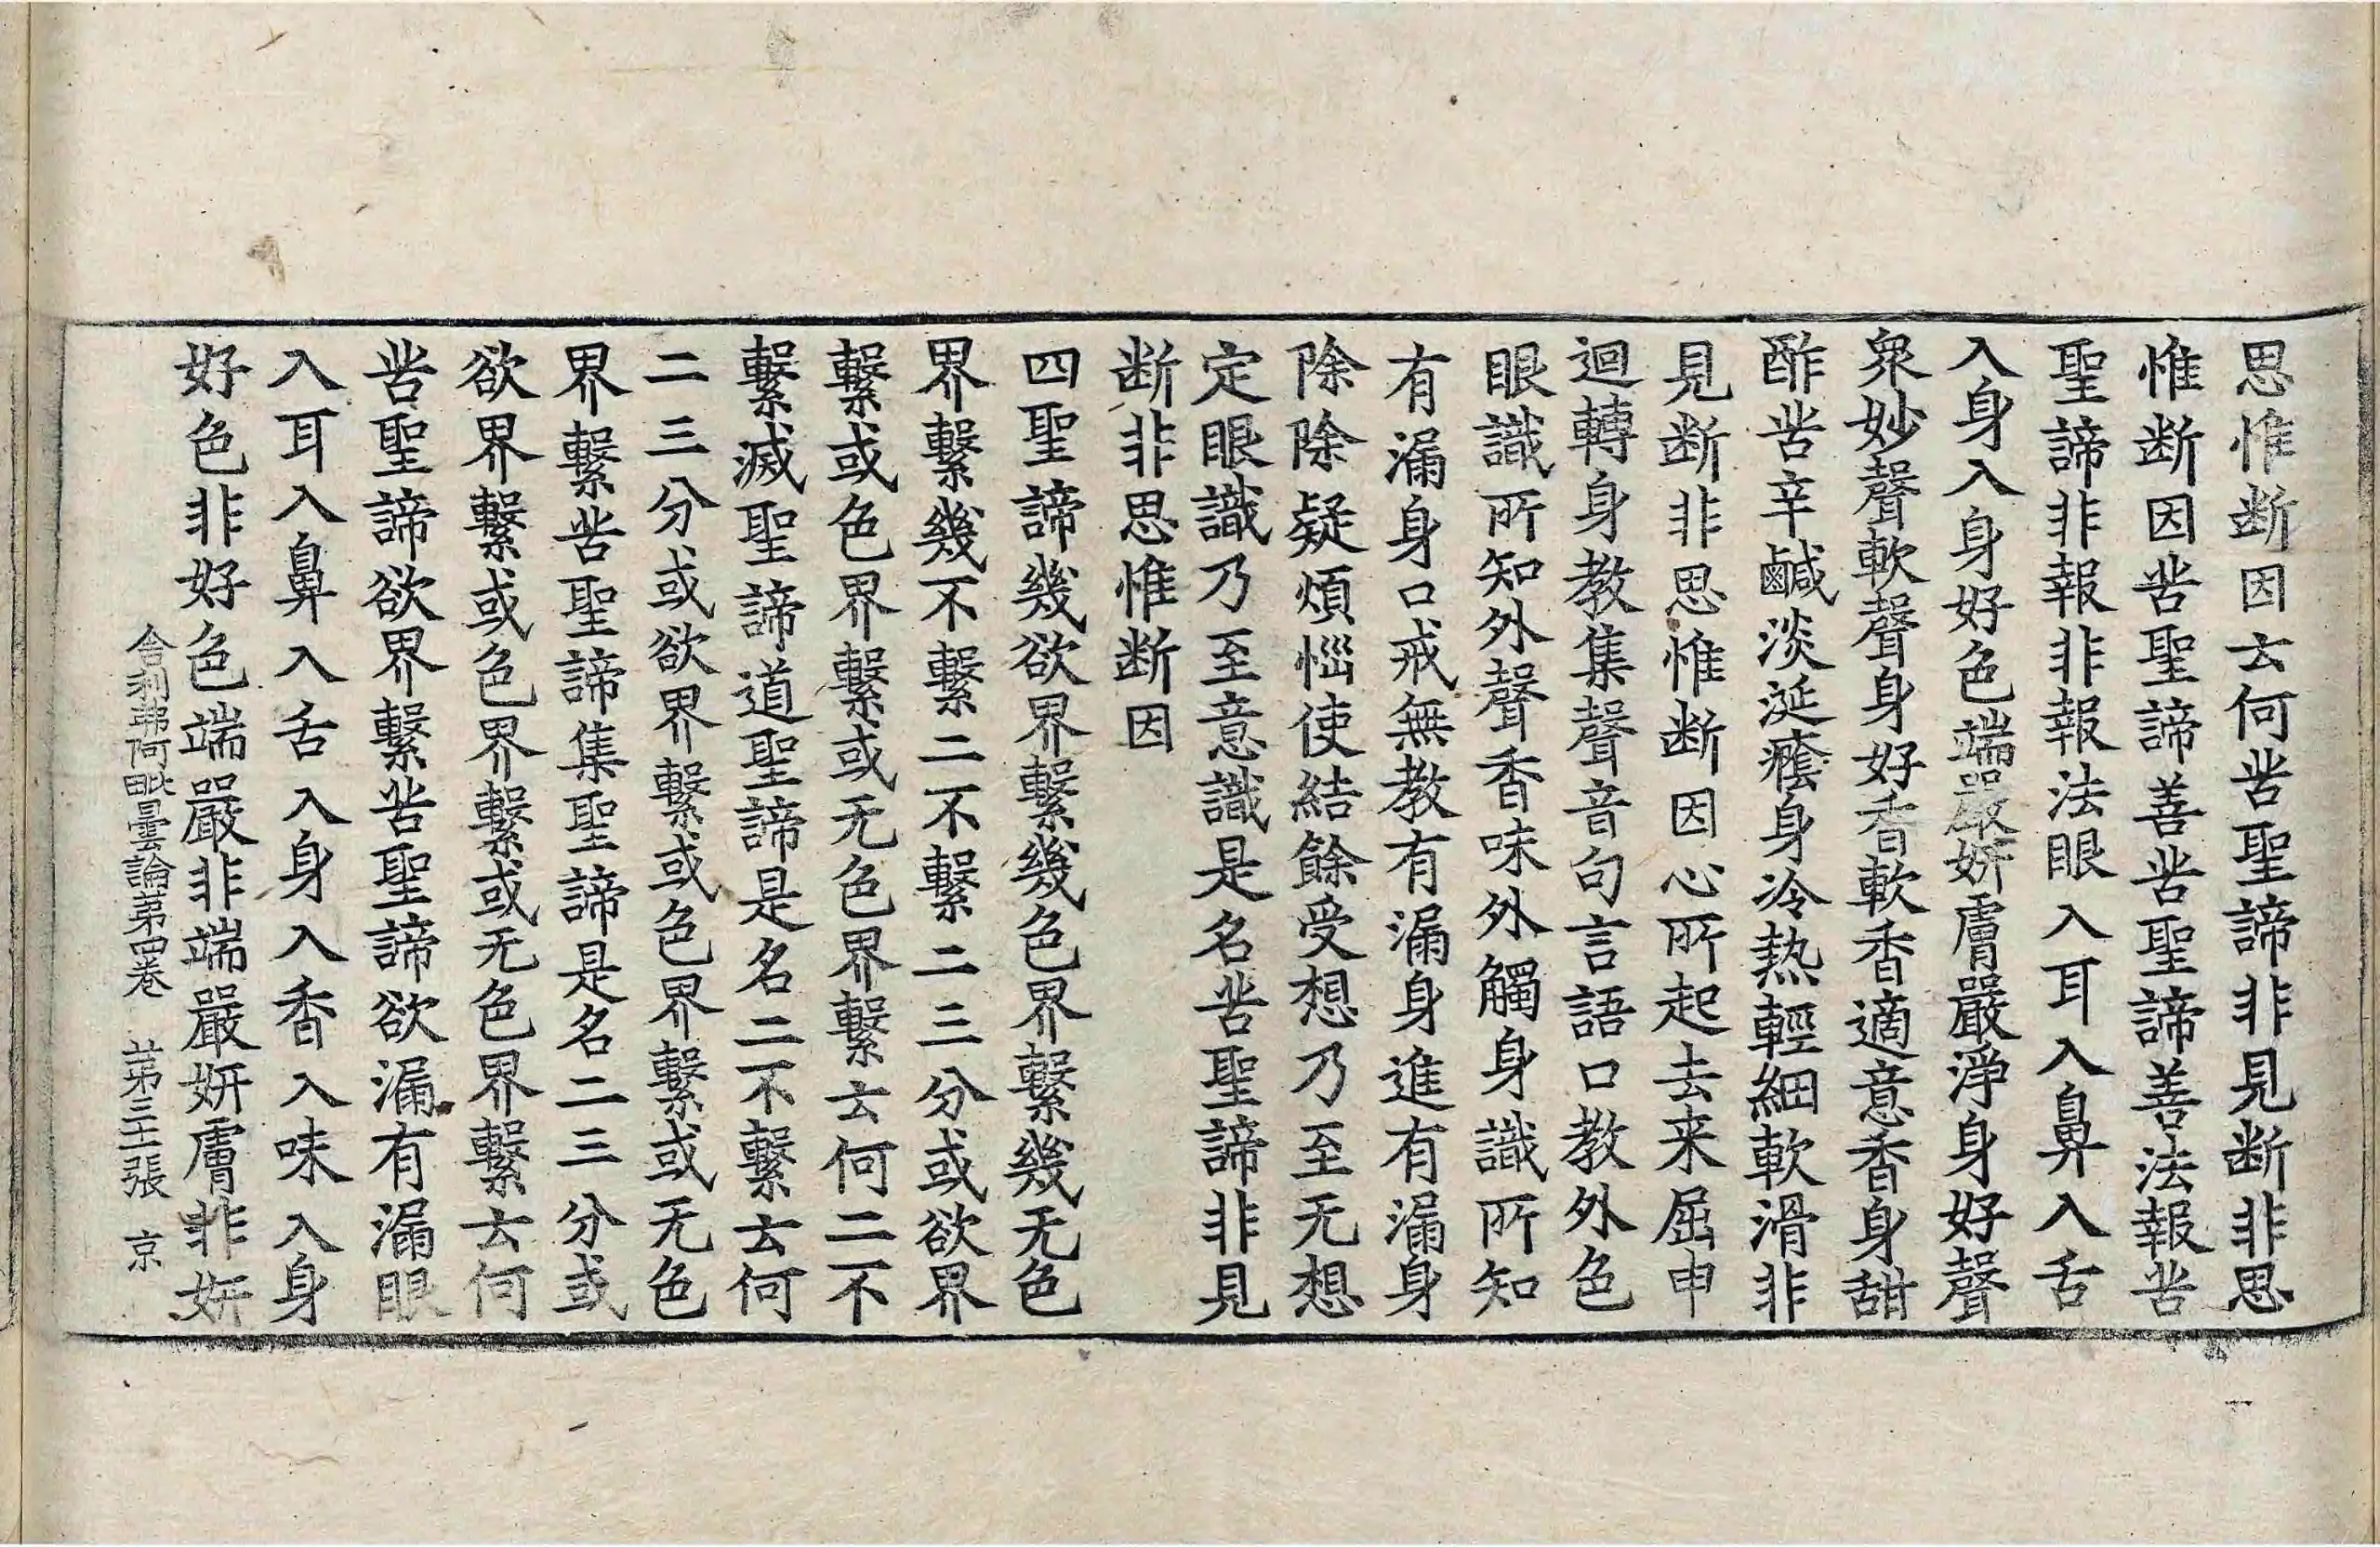 思惟断因云何苦聖諦非見断非思
惟断因苦聖諦善苦聖諦善法報苦
聖諦非報非報法眼入耳入鼻入舌
入身入身好色端嚴妍膚嚴淨身好聲
衆妙聲軟聲身好香軟香適意香身甜
酢苦辛鹹淡涎癊身冷熱輕細軟滑非
見断非思惟断因心所起去来屈申
迴轉身教集聲音句言語口教外色
眼識所知外聲香味外觸身識所知
有漏身口戒無教有漏身進有漏身
除除疑煩惱使結餘受想乃至无想
定眼識乃至意識是名苦聖諦非見
断非思惟断因
四聖諦幾欲界繫幾色界繫幾无色
界繫幾不繫二不繫二三分或欲界
繫或色界繫或无色界繫云何二不
繫滅聖諦道聖諦是名二不繫云何
二三分或欲界繫或色界繫或无色
界繫苦聖諦集聖諦是名二三分或
欲界繫或色界繫或无色界繫云何
苦聖諦欲界繫苦聖諦欲漏有漏眼
入耳入鼻入舌入身入香入味入身
好色非好色端嚴非端嚴妍膚非妍
舎利弗阿毗曇論第四卷 第三張 京